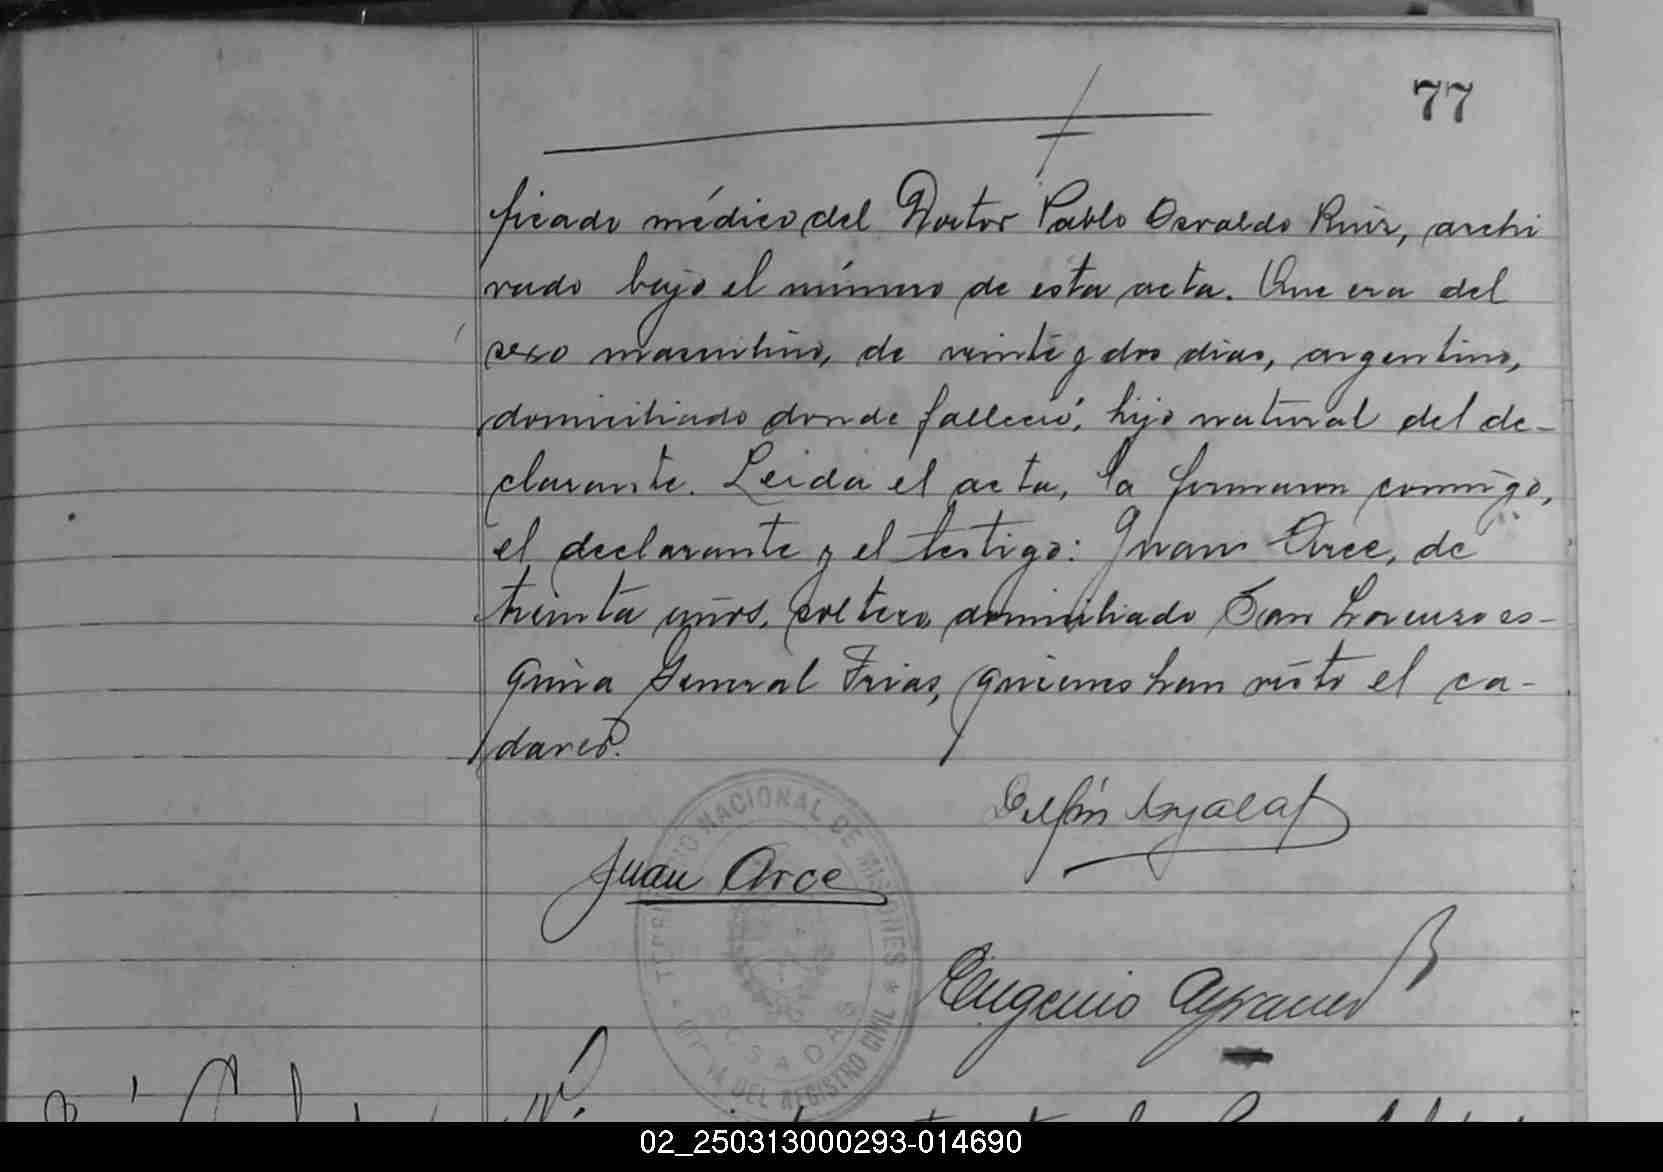 77
ficado médico del Doctor Pablo Osvaldo Ruiz, archi
vado bajo el número de esta acta. Que era del
sexo masculino, de veinte y dos dias, argentino,
domiciliado donde falleció, hijo natural del de-
clarante. Leida el acta, la firmaron conmigo,
el declarante y el testigo: Juan Arce, de
treinta años, soltero, domiciliado San Lorenzo es-
quina General Frias, quienes han visto el ca-
daver.
Delfín Ayala
Juan Arce
Eugenio
TERRITORIO NACIONAL DE MISIONES
POSADAS
DEL REGISTRO CIVIL
02_250313000293-014690